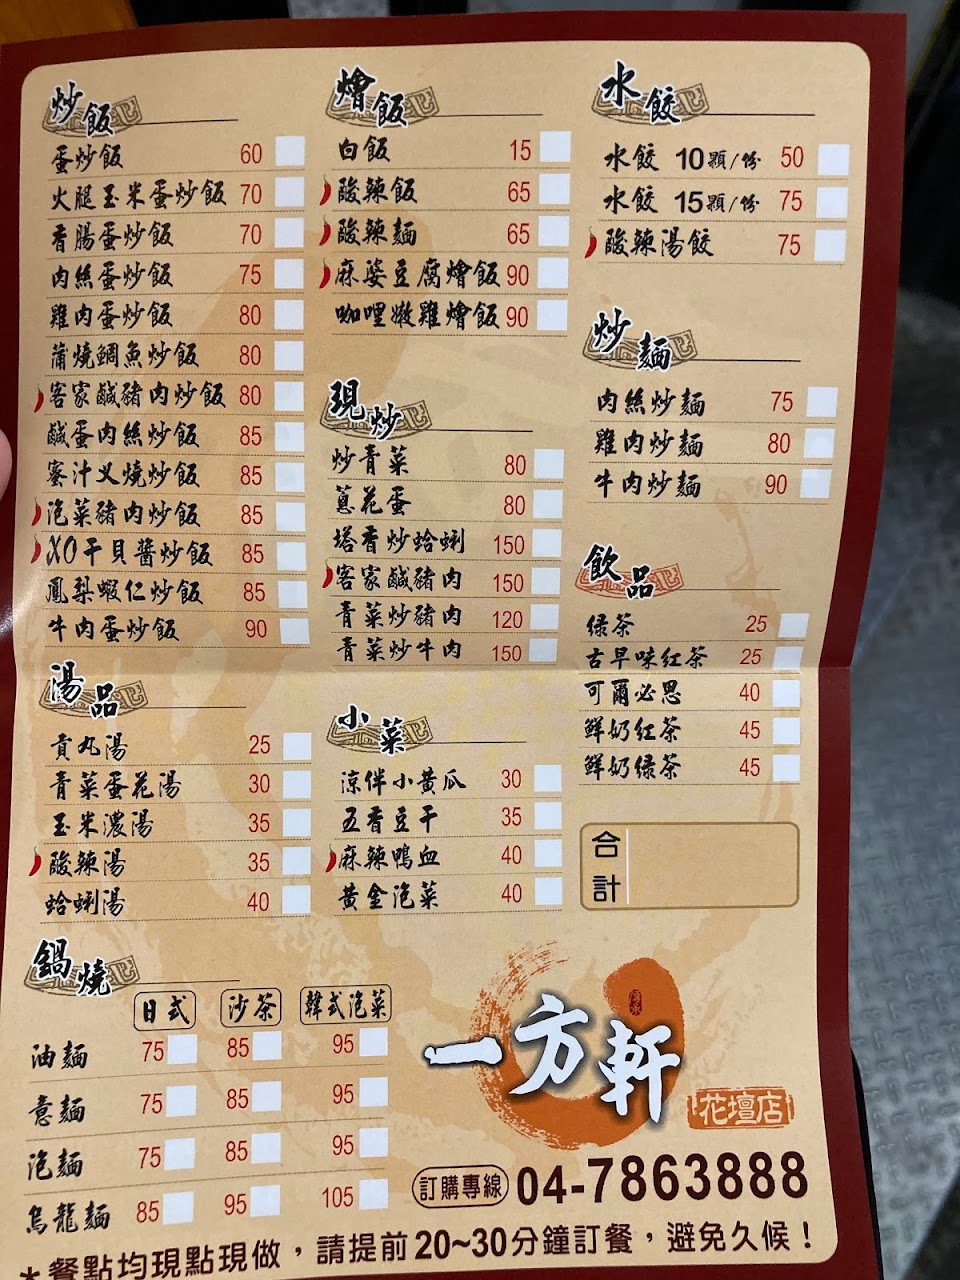 炒飯
蛋炒飯 60
火腿玉米蛋炒飯 70
香腸蛋炒飯 70
肉絲蛋炒飯 75
雞肉蛋炒飯 80
蒲燒鯛魚炒飯 80
客家鹹豬肉炒飯 80
鹹蛋肉絲炒飯 85
蜜汁叉燒炒飯 85
泡菜豬肉炒飯 85
XO干貝醬炒飯 85
鳳梨蝦仁炒飯 85
牛肉蛋炒飯 90
湯品
貢丸湯 25
青菜蛋花湯 30
玉米濃湯 35
酸辣湯 35
蛤蜊湯 40
燴飯
白飯 15
酸辣飯 65
酸辣麵 65
麻婆豆腐燴飯 90
咖哩嫩雞燴飯 90
現炒
炒青菜 80
蔥花蛋 80
塔香炒蛤蜊 150
客家鹹豬肉 150
青菜炒豬肉 120
青菜炒牛肉 150
小菜
涼伴小黃瓜 30
五香豆干 35
麻辣鴨血 40
黃金泡菜 40
水餃
水餃 10顆/份 50
水餃 15顆/份 75
酸辣湯餃 75
炒麵
肉絲炒麵 75
雞肉炒麵 80
牛肉炒麵 90
飲品
綠茶 25
古早味紅茶 25
可爾必思 40
鮮奶紅茶 45
鮮奶綠茶 45
合計
鍋燒
日式 沙茶 韓式泡菜
油麵 75 85 95
意麵 75 85 95
泡麵 75 85 95
烏龍麵 85 95 105
一方軒
花壇店
訂購專線 04-7863888
*餐點均現點現做，請提前20~30分鐘訂餐，避免久候！